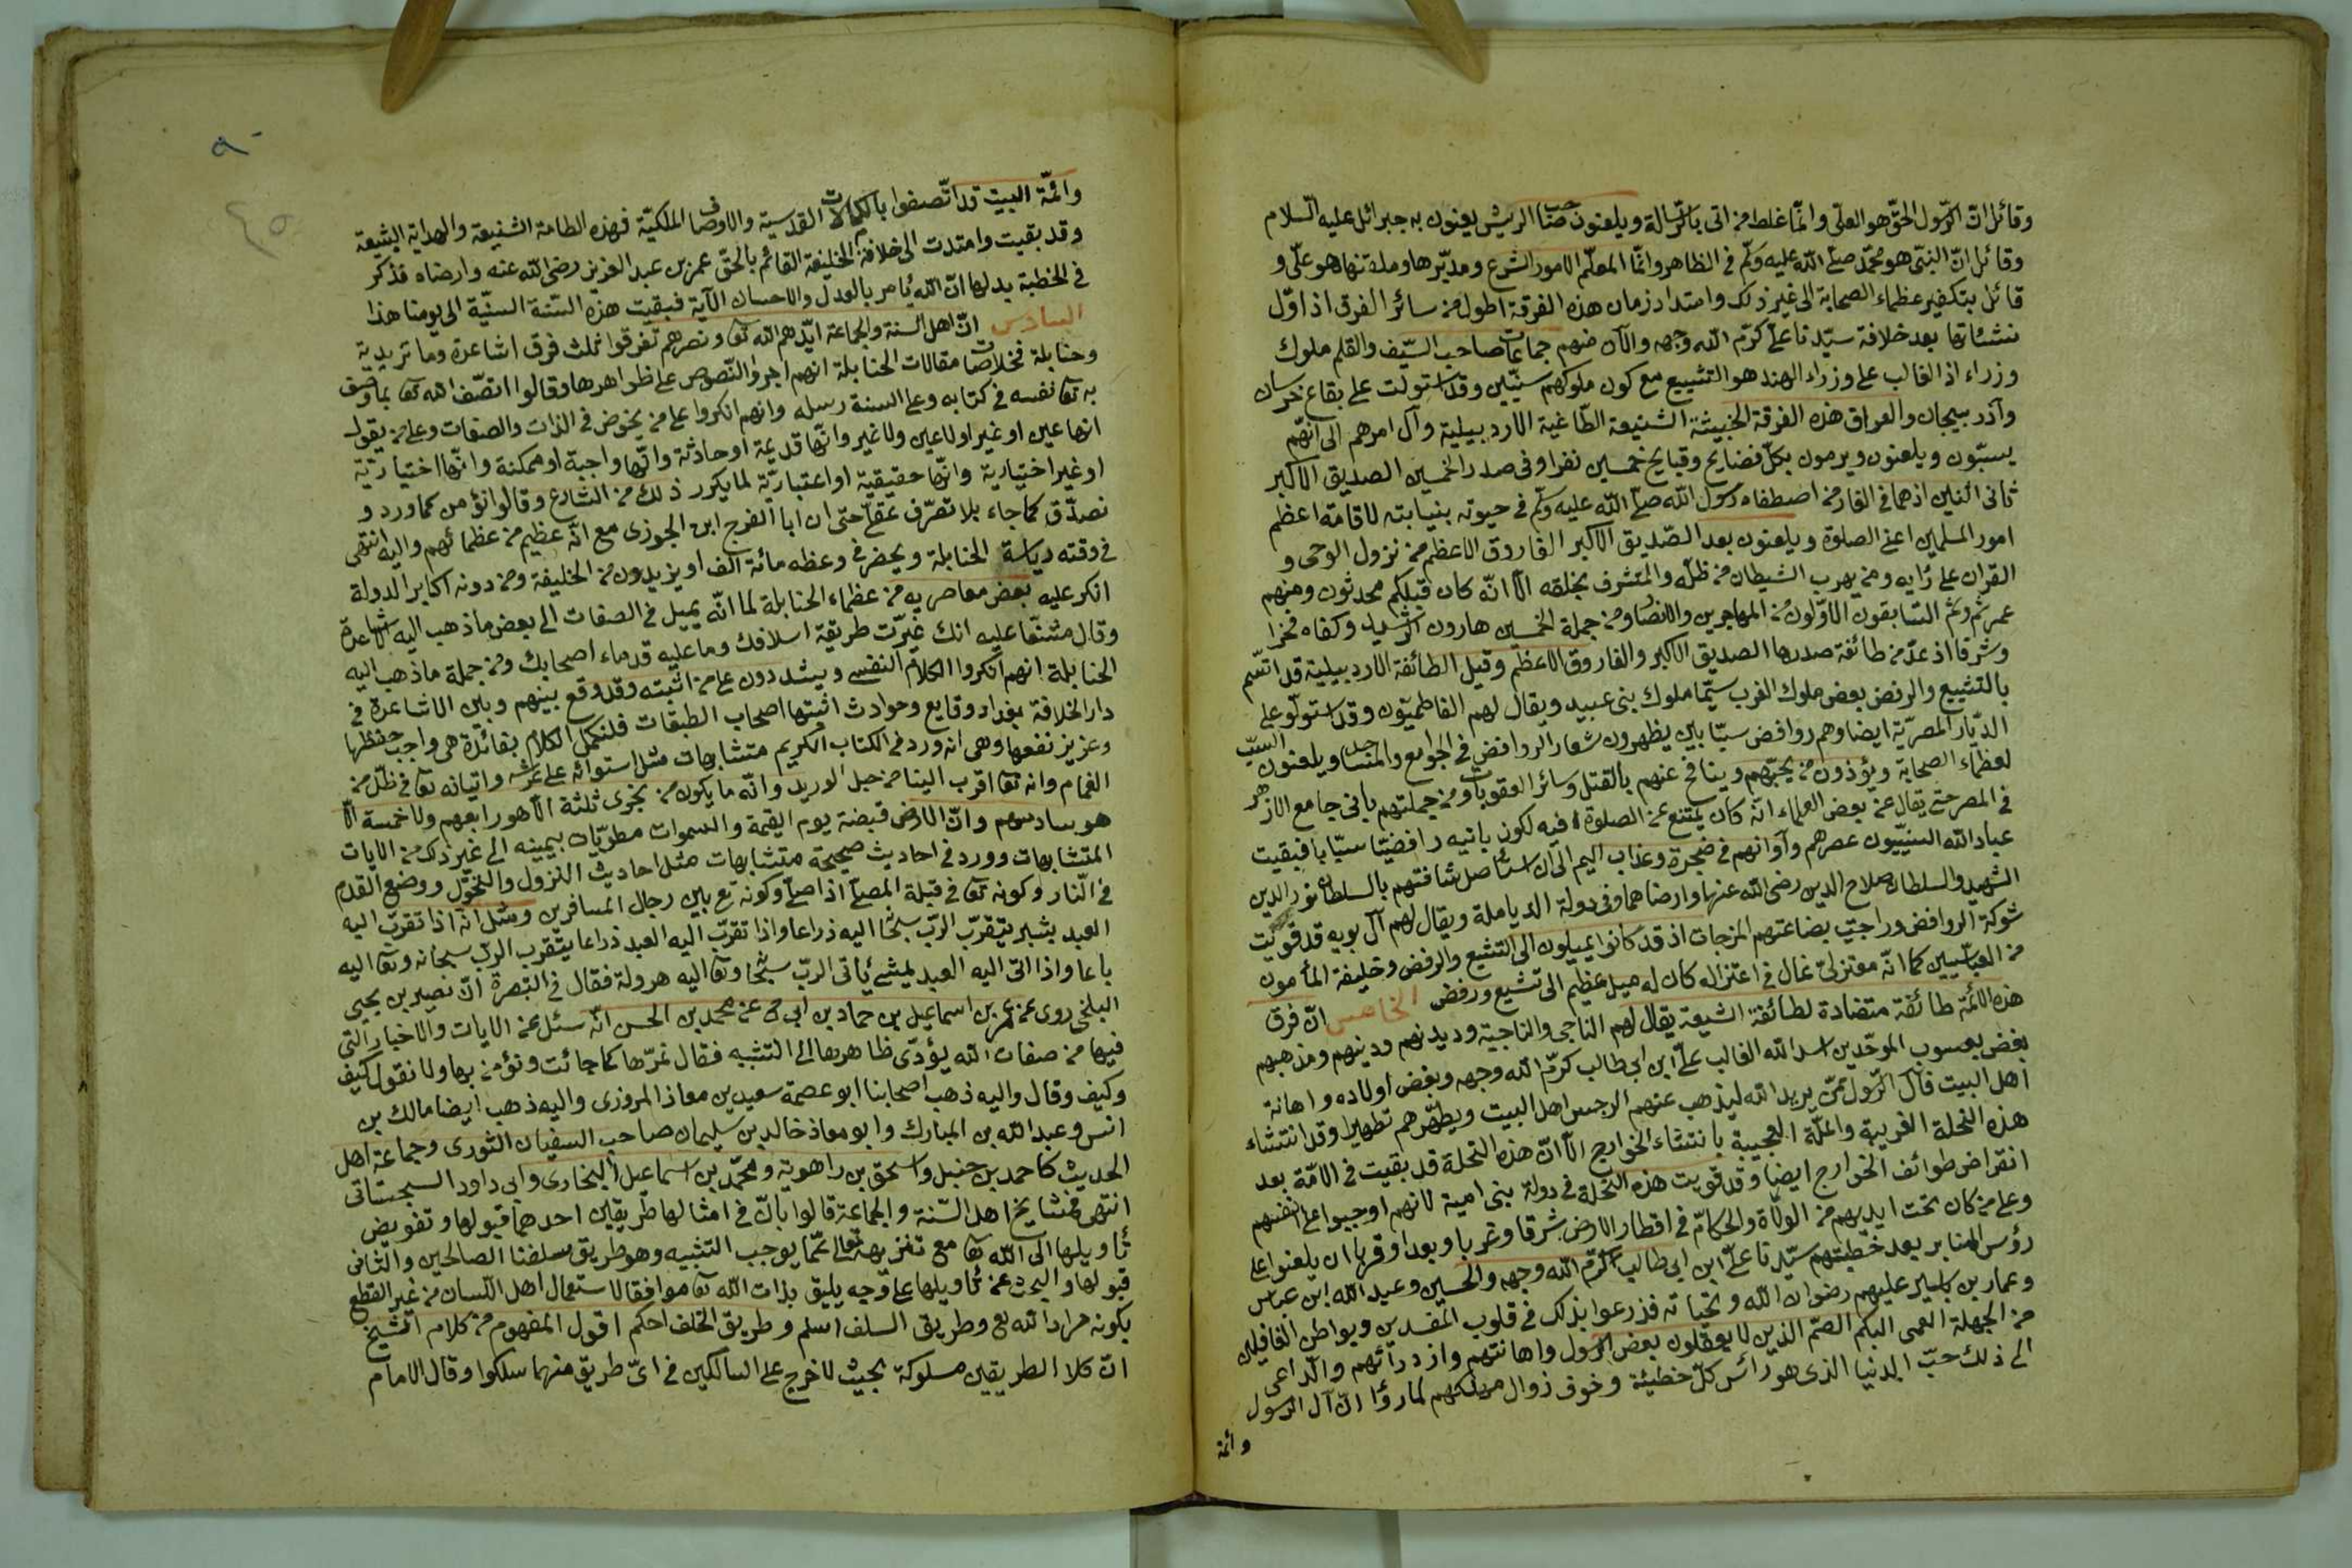 وقائل ان الرّسول الحقّ هو العلى وانّما غلط من اتى بالرّسالة ويلعنون صاحب الريش يعنون به جبرائل عليه السّلام
وقائل انّ النّبى هو محمّد صلى الله عليه وسلّم فى الظاهر وانّما المعلّم لامور الشرع ومدبّرها وملقنها هو علىّ و
قائل بتكفير عظماء الصحابة الى غير ذلك وامتداد زمان هذه الفرقة اطول من سائر الفرق اذ اوّل
نشئاتها بعد خلافة سيّدنا علىّ كرّم الله وجهه والآن منهم جماعات صاحب السّيف والقلم ملوك
وزراء اذ الغالب على وزراء الهند هو التشيع مع كون ملوكهم سنّيّين وقد استولت على بقاع خراسان
وآذربيجان والعراق هذه الفرقة الخبيثة الشنيعة الطّاغية الاردبيلية وآل امرهم الى انّهم
يسبّون ويلعنون ويرمون بكلّ فضايح وقبايح خمسين نفرا وفى صدر الخمسين الصديق الاكبر
ثانى اثنين اذهما فى الغار من اصطفاه رسول الله صلّى الله عليه وسلّم فى حيوته بنيابته لاقامة اعظم
امور المسلمين اعنى الصلوة ويلعنون بعد الصّديق الاكبر الفاروق الاعظم من نزول الوحى و
القران على رأيه ومن يهرب الشيطان من ظلّه والمتشرف بخلقه الا انّه كان قبلكم محدثون ومنهم
عمر ثم وثم السّابقون الاوّلون من المهاجرين والانصار ومن جملة الخمسين هارون الرّشيد وكفاه فخرا
وشرفا اذ عدّ من طائفة صدرها الصديق الاكبر والفاروق الاعظم وقبل الطائفة الاردبيلية قد اتسّم
بالتشيع والرفض بعض ملوك الغرب سيّما ملوك بنى عبيد ويقال لهم الفاطميّون وقد استولّو على
الدّيار المصريّة ايضا وهم روافض سبّابين يظهرون شعار الروافض فى الجوامع والمساجد ويلعنون السبّ
لعظماء الصحابة ويؤذون من يحبّهم وينافح عنهم بالقتل وسائر العقوبات ومن جملتهم بانى جامع الازهر
فى المصر حتى يقال عن بعض العلماء انّه كان يمتنع عن الصلوة فيه لكون بانيه رافضيّا سبّابا فبقيت
عباد الله السنيّون عصرهم وآوانهم فى ضجرة وعذاب اليم الى ان استأصل شافتهم بالسلطان نور الدين
الشهيد والسلطان صلاح الدين رضى الله عنهما وارضاهما وفى دولة الدياملة ويقال لهم آل بويه قد قويت
شوكة الروافض وراجت بضاعتهم المزجات اذ قد كانوا يميلون الى التشيع والرفض وخليفة المأمون
من العباسيين كما انّه معتزلىّ غال فى اعتزاله كان له ميل عظيم الى تشيع ورفض الخامس انّ فرق
هذه الائمّة طائفة متضادة لطائفة الشيعة يقال لهم الناجى والناجية وديدنهم ودينهم ومذهبهم
بغض يعسوب الموحّدين اسد الله الغالب علىّ ابن ابى طالب كرّم الله وجهه وبغض اولاده واهانة
اهل البيت قال الرّسول عمّن يريد الله ليذهب عنهم الرجس اهل البيت ويطهّرهم تطهيرا وقد انتشاء
هذه النحلة الغريبة والملّة العجيبة بانتشاء الخوارج الّا انّ هذه النحلة قد بقيت فى الامّة بعد
انقراض طوائف الخوارج ايضا وقد قويت هذه النحلة فى دولة بنى امية لانهم اوجبوا على انفسهم
وعلى من كان تحت ايديهم من الولاة والحكام فى اقطار الارض شرقا وغربا وبعدا وقربا ان يلعنوا على
رؤس المنابر بعد خطبتهم سيّدنا علىّ ابن ابى طالب كرّم الله وجهه والحسين وعبد الله ابن عباس
وعمار بن ياسر عليهم رضوان الله وتحياته فزرعوا بذلك فى قلوب المفسدين وبواطن الغافلين
من الجهلة العمى البكم الصّم الذين لا يعقلون بغض الرسول واهانتهم وازدرآئهم والدّاعى
الى ذلك حبّ الدنيا الذى هو رأس كلّ خطيئة وخوف زوال ملكهم لما رؤا انّ آل الرسول
وائمة
٩٠
٤٥
وائمّة البيت قد اتّصفوا بالكمالات القدسية والاوصاف الملكيّة فهذه الطامة الشنيعة والهداية البشيعة
وقد بقيت وامتدت الى خلافة الخليفة القائم بالحقّ عمر بن عبد العزيز رضى الله عنه وارضاه فذكر
فى الخطبة بدلها انّ الله يأمر بالعدل والاحسان الآية فبقيت هذه السّنة السنيّة الى يومنا هذا
السادس انّ اهل السنة والجماعة ايّدهم الله تعا ونصرهم تفرقوا ثلث فرق اشاعرة وماتريدية
وحنابلة فخلاصات مقالات الحنابلة انهم اجروا النّصوص على ظواهرها وقالوا اتصّف الله تعا بما وصف
به تعا نفسه فى كتابه وعلى السنة رسله وانهم انكروا على من يخوض فى الذات والصفات وعلى من يقول
انها عين او غير اولا عين ولا غير وانّها قديمة او حادثة وانّها واجبة او ممكنة وانّها اختياريّة
او غير اختيارية وانّها حقيقية او اعتباريّة لما يكرر ذلك من الشارع وقالوا نؤمن كما ورد و
نصدّق كما جاء بلا تصرّف عقلىّ حتى ان ابا الفرج ابن الجوزى مع انّه عظيم من عظمائهم واليه انتهى
فى وقته رياسة الحنابلة ويحضر فى وعظه مائة الف او يزيدون من الخليفة ومن دونه اكابر الدولة
انكر عليه بعض معاصريه من عظماء الحنابلة لما انّه يميل فى الصفات الى بعض ما ذهب اليه الاشاعرة
وقال مشنّعا عليه انك غيّرت طريقة اسلافك وما عليه قدماء اصحابك ومن جملة ما ذهب اليه
الحنابلة انهم انكروا الكلام النفسى ويشددون على من اثبته وقد وقع بينهم وبين الاشاعرة فى
دار الخلافة بغداد وقايع وحوادث اثبتها اصحاب الطبقات فلنكمل الكلام بفائدة هى واجب حفظها
وعزيز نفعها وهى انه ورد فى الكتاب الكريم متشابهات مثل استوائه على عرشه واتيانه تعا فى ظلل من
الغمام وانه تعا اقرب الينا من حبل الوريد وانّه ما يكون من نجوى ثلثة الّا هو رابعهم ولا خمسة الّا
هو سادسهم وانّ الارض قبضته يوم القيمة والسموات مطويّات بيمينه الى غير ذلك من الايات
المتشابهات وورد فى احاديث صحيحة متشابهات مثل احاديث النزول والتحوّل ووضع القدم
فى النّار وكونه تعا فى قبلة المصلّى اذا صلّى وكونه تع بين رجال المسافرين ومثل انّه اذا تقرّب اليه
العبد بشبر يتقرّب الربّ سبحا اليه ذراعا واذا تقرّب اليه العبد ذراعا يتقرب الربّ سبحانه وتعا اليه
باعا واذا اتى اليه العبد يمشى يأتى الربّ سبحا وتعا اليه هرولة فقال فى التبصرة انّ نصير بن يحيى
البلخى روى عن عمر بن اسماعيل بن حماد بن ابى ح عن محمد بن الحسن انّه سئل عن الايات والاخبار التى
فيها من صفات الله يؤدّى ظاهرها الى التشبه فقال نمرّها كما جائت ونؤمن بها ولا نقول كيف
وكيف وقال واليه ذهب اصحابنا ابو عصمة سعيد بن معاذ المروزى واليه ذهب ايضا مالك بن
انس وعبد الله بن المبارك وابو معاذ خالد بن سليمان صاحب السفيان الثورى وجماعة اهل
الحديث كاحمد بن حنبل واسحق بن راهوية ومحمّد بن اسماعيل البخارى وابى داود السجستانى
انتهى فمشايخ اهل السّنة والجماعة قالوا بانّ فى امثالها طريقين احدهما قبولها وتفويض
تأويلها الى الله تعا مع تنزيهه تعالى عمّا يوجب التشبيه وهو طريق سلفنا الصالحين والثانى
قبولها والبحث عن تأويلها على وجه يليق بذات الله تعا موافقا لاستعمال اهل اللسان من غير القطع
بكونه مراد الله تع وطريق السلف اسلم وطريق الخلف احكم اقول المفهوم من كلام الشيخ
انّ كلا الطريقين مسلوكة بحيث لا حرج على السالكين فى اىّ طريق منهما سلكوا وقال الامام